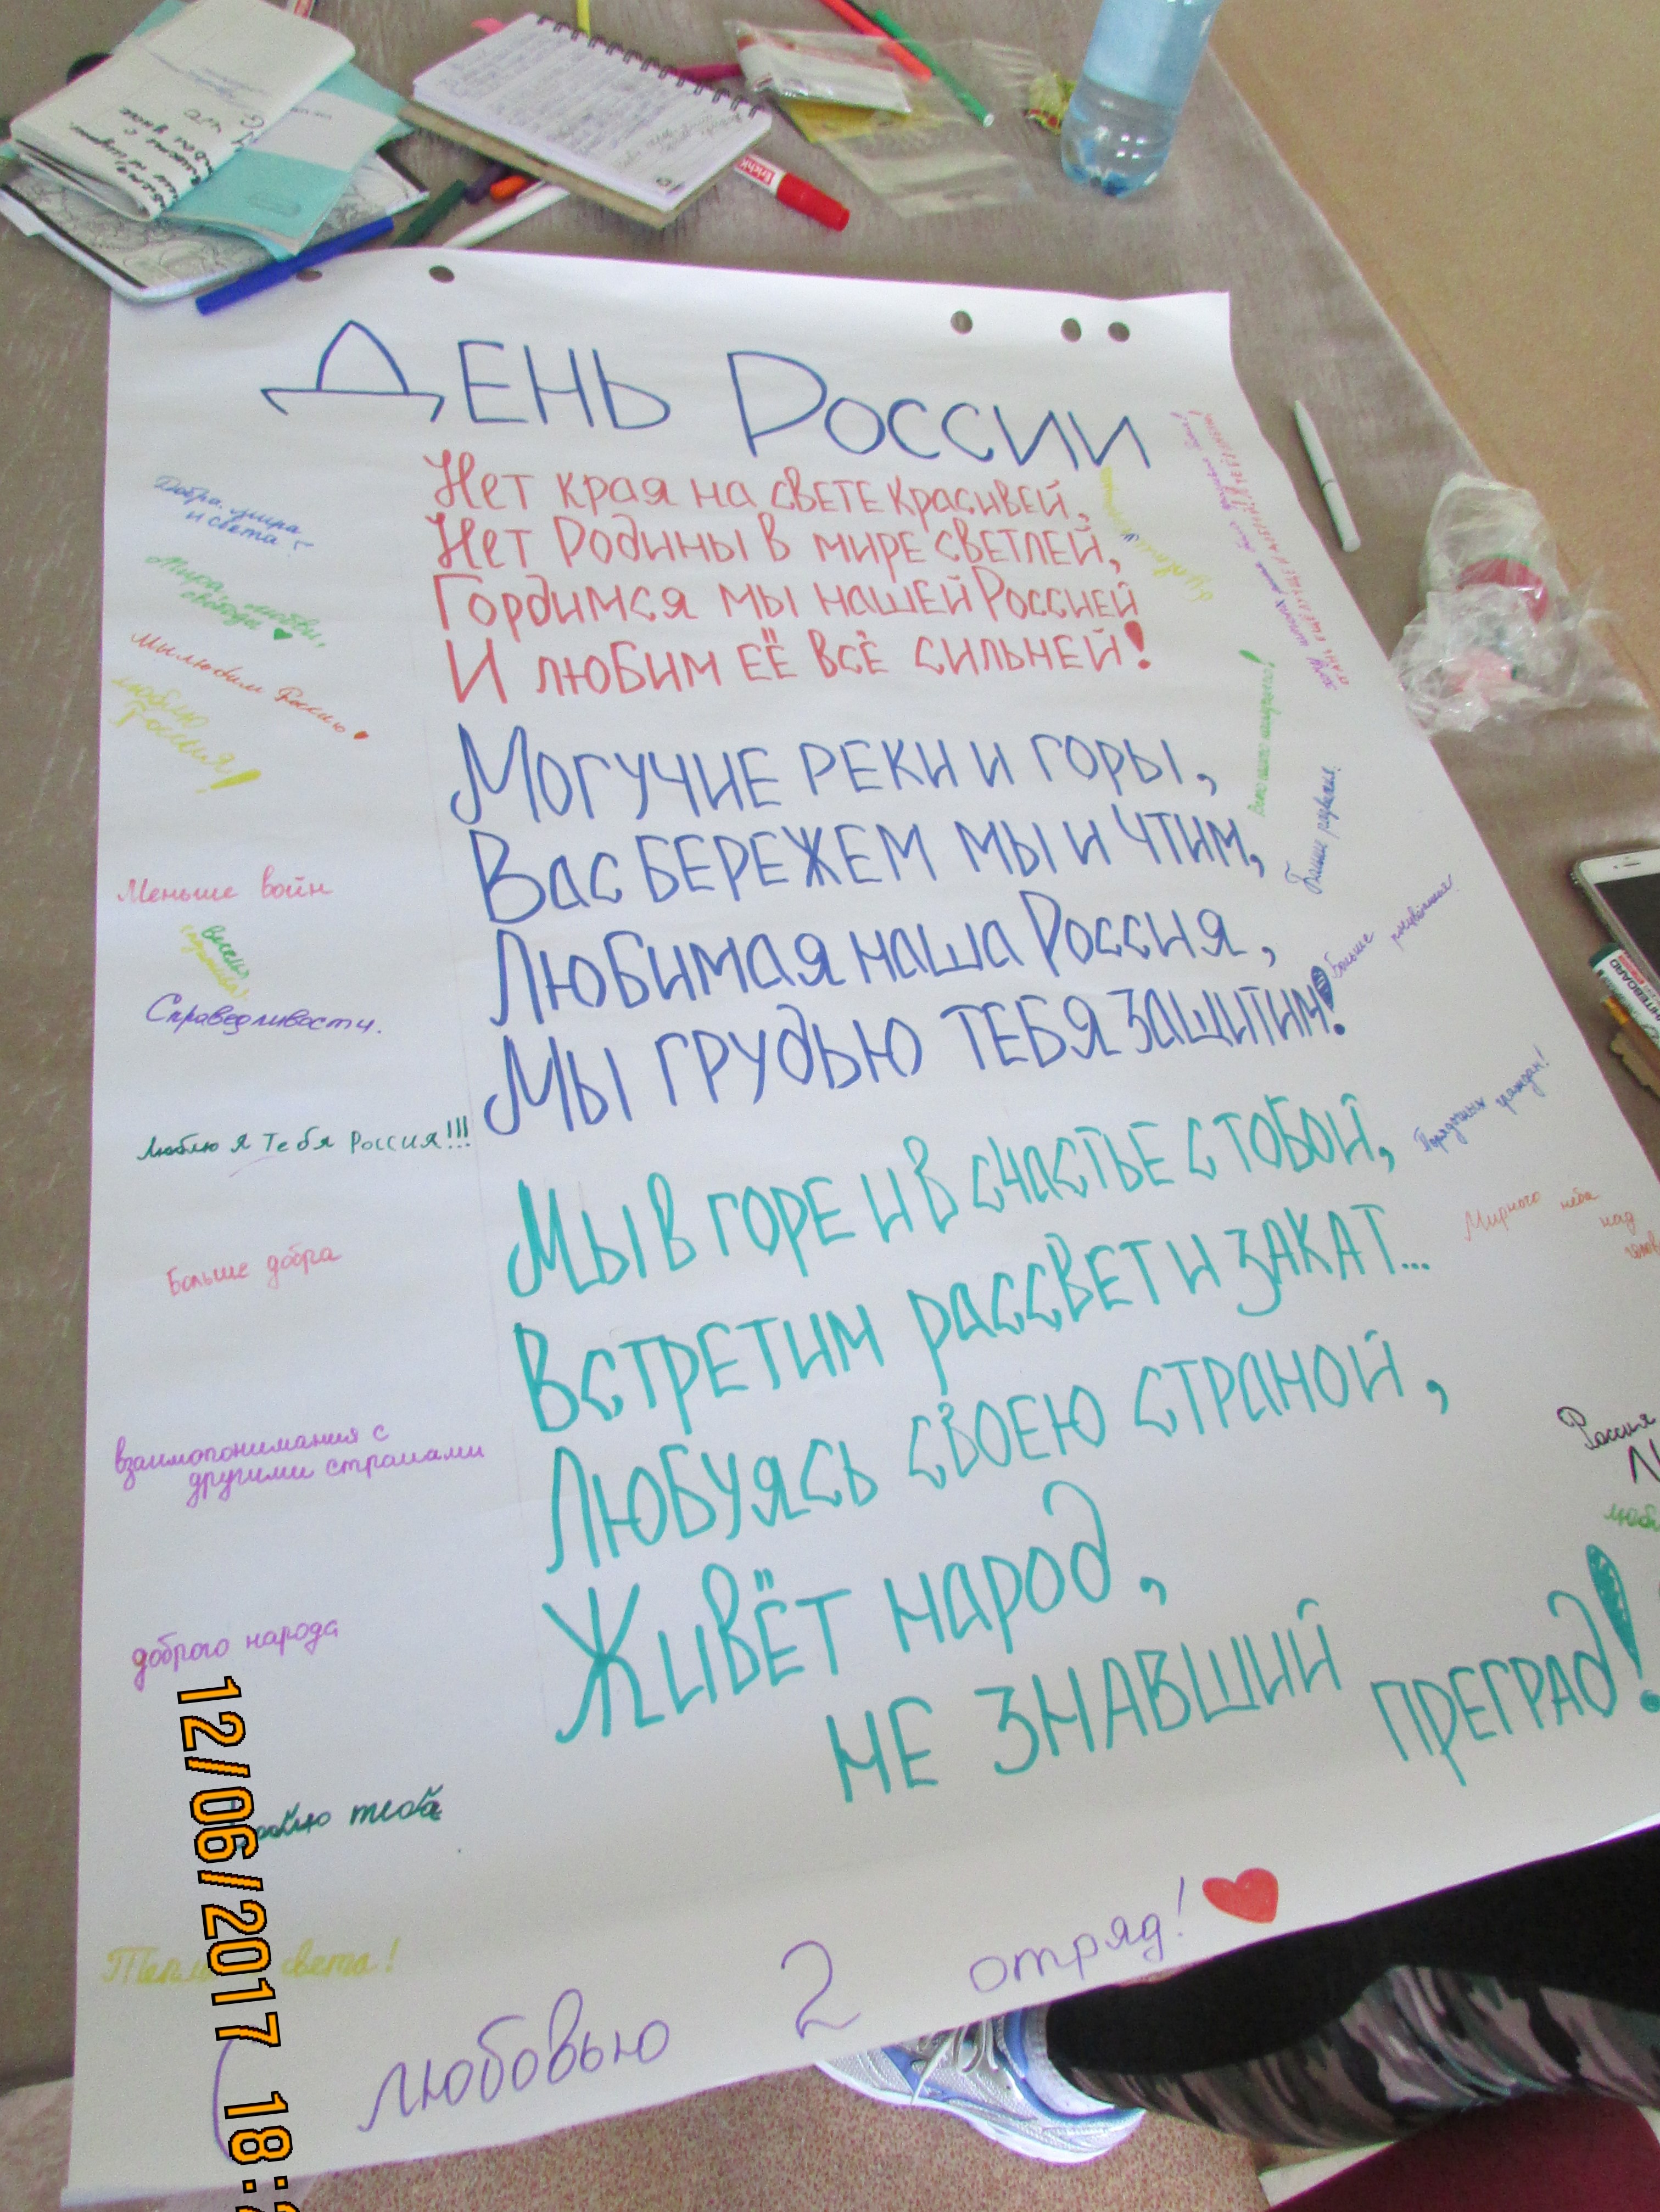 День России
Нет края на свете красивей,
Нет Родины в мире светлей,
Гордимся мы нашей Россией
И любим её всё сильней!
Могучие реки и горы,
Вас бережем мы и чтим,
Любимая наша Россия,
Мы грудью тебя защитим!
Мы в горе и в счастье с тобой,
Встретим рассвет и закат...
Любуясь своею страной,
Живёт народ,
не знавший преград!
Добра, мира
и света!
Мира, любви,
свободы
Мы любим Россию
люблю
Россия!
Меньше войн
Справедливости.
Люблю я тебя Россия!!!
Больше добра
взаимопонимания с
другими странами
доброго народа
тебя
света!
С любовью 2 отряд!
Больше
Порядочных граждан!
Мирного неба
над
Россия
12/06/2017 18: